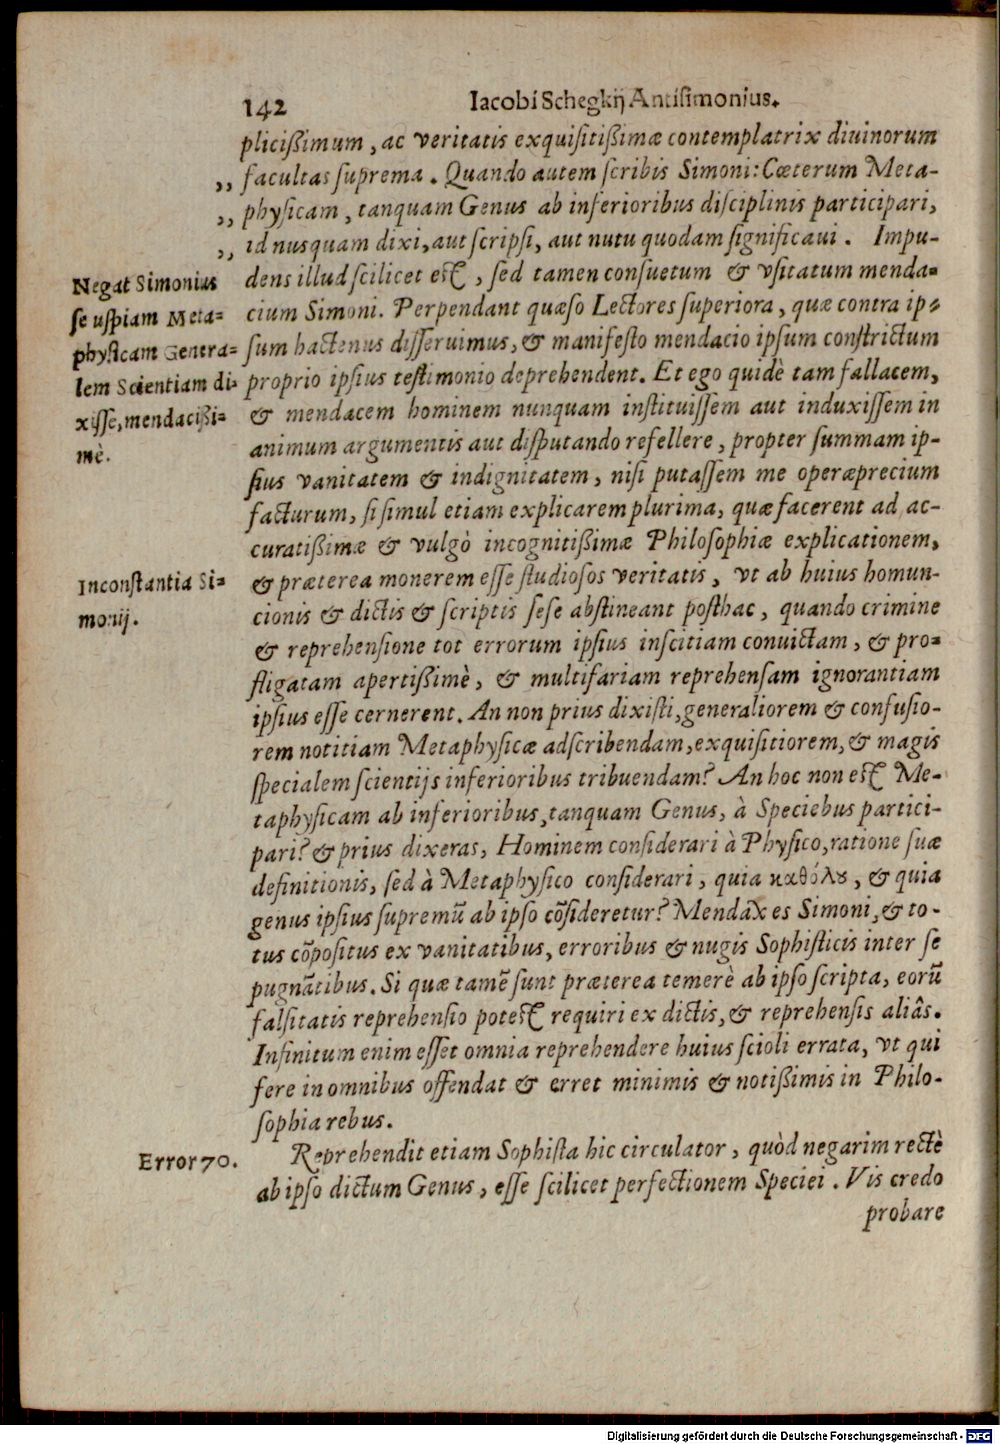 142 Iacobi Schegkij Antisimonius.
plicißimum, ac veritatis exquisitißimæ contemplatrix diuinorum
,, facultas suprema. Quando autem scribis Simoni: Cæterum Meta-
,, physicam, tanquam Genus ab inferioribus disciplinis participari,
,, id nusquam dixi, aut scripsi, aut nutu quodam significaui. Impu-
dens illud scilicet est, sed tamen consuetum & vsitatum menda-
cium Simoni. Perpendant quæso Lectores superiora, quæ contra ip-
sum hactenus disseruimus, & manifesto mendacio ipsum constrictum
proprio ipsius testimonio deprehendent. Et ego quidē tam fallacem,
& mendacem hominem nunquam instituissem aut induxissem in
animum argumentis aut disputando refellere, propter summam ip-
sius vanitatem & indignitatem, nisi putassem me operæprecium
facturum, si simul etiam explicarem plurima, quæ facerent ad ac-
curatißimæ & vulgò incognitißimæ Philosophiæ explicationem,
& præterea monerem esse studiosos veritatis, vt ab huius homun-
cionis & dictis & scriptis sese abstineant posthac, quando crimine
& reprehensione tot errorum ipsius inscitiam conuictam, & pro-
fligatam apertißimè, & multifariam reprehensam ignorantiam
ipsius esse cernerent. An non prius dixisti, generaliorem & confusio-
rem notitiam Metaphysicæ adscribendam, exquisitiorem, & magis
specialem scientijs inferioribus tribuendam? An hoc non est Me-
taphysicam ab inferioribus, tanquam Genus, à Speciebus partici-
pari? & prius dixeras, Hominem considerari à Physico, ratione suæ
definitionis, sed à Metaphysico considerari, quia καθόλȣ, & quia
genus ipsius supremū ab ipso cōsideretur? Mendax es Simoni, & to-
tus cōpositus ex vanitatibus, erroribus & nugis Sophisticis inter se
pugnātibus. Si quæ tamē sunt præterea temerè ab ipso scripta, eorū
falsitatis reprehensio potest requiri ex dictis, & reprehensis aliâs.
Infinitum enim esset omnia reprehendere huius scioli errata, vt qui
fere in omnibus offendat & erret minimis & notißimis in Philo-
sophia rebus.
Reprehendit etiam Sophista hic circulator, quòd negarim rectè
ab ipso dictum Genus, esse scilicet perfectionem Speciei. Vis credo
probare
Negat Simonius
se uspiam Meta-
physicam Genera-
lem Scientiam di-
xisse, mendacißi-
mè.
Inconstantia Si-
monij.
Error 70.
Digitalisierung gefördert durch die Deutsche Forschungsgemeinschaft - DFG